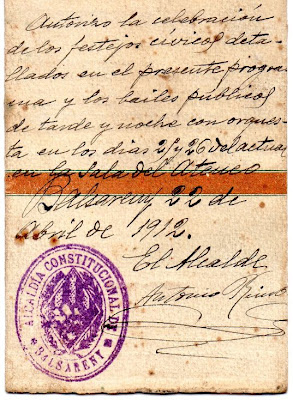 Autorizo la celebración
de los festejos cívicos deta-
llados en el presente progra-
ma y los bailes públicos
de tarde y noche con orques-
ta en los dias 25 y 26 del actual
en la Sala del Ateneo
Balsareny 22 de
Abril de 1912.
El Alcalde
Antonio
ALCALDIA CONSTITUCIONAL DE
* BALSARENY *